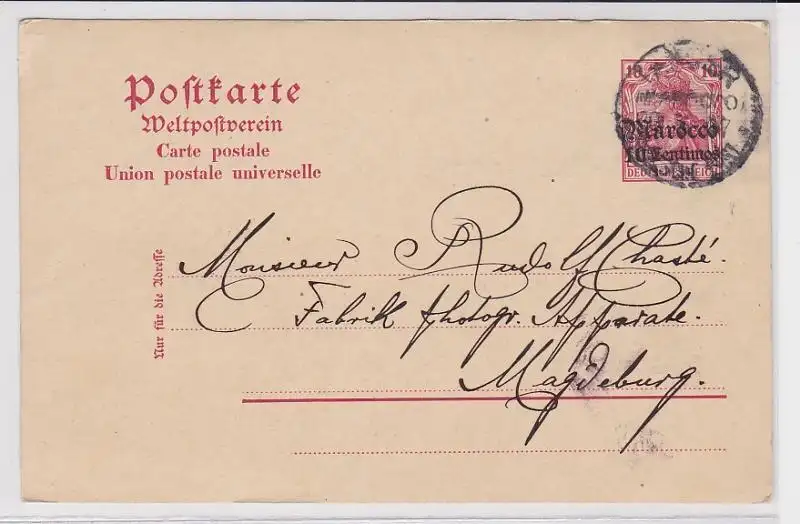 Postkarte
Weltpostverein
Carte postale
Union postale universelle
10 10
Marocco
10 Centimos
DEUTSCHES REICH
Nur für die Adresse
Monsieur Rudolf Chasté.
Fabrik photogr. Apparate.
Magdeburg.